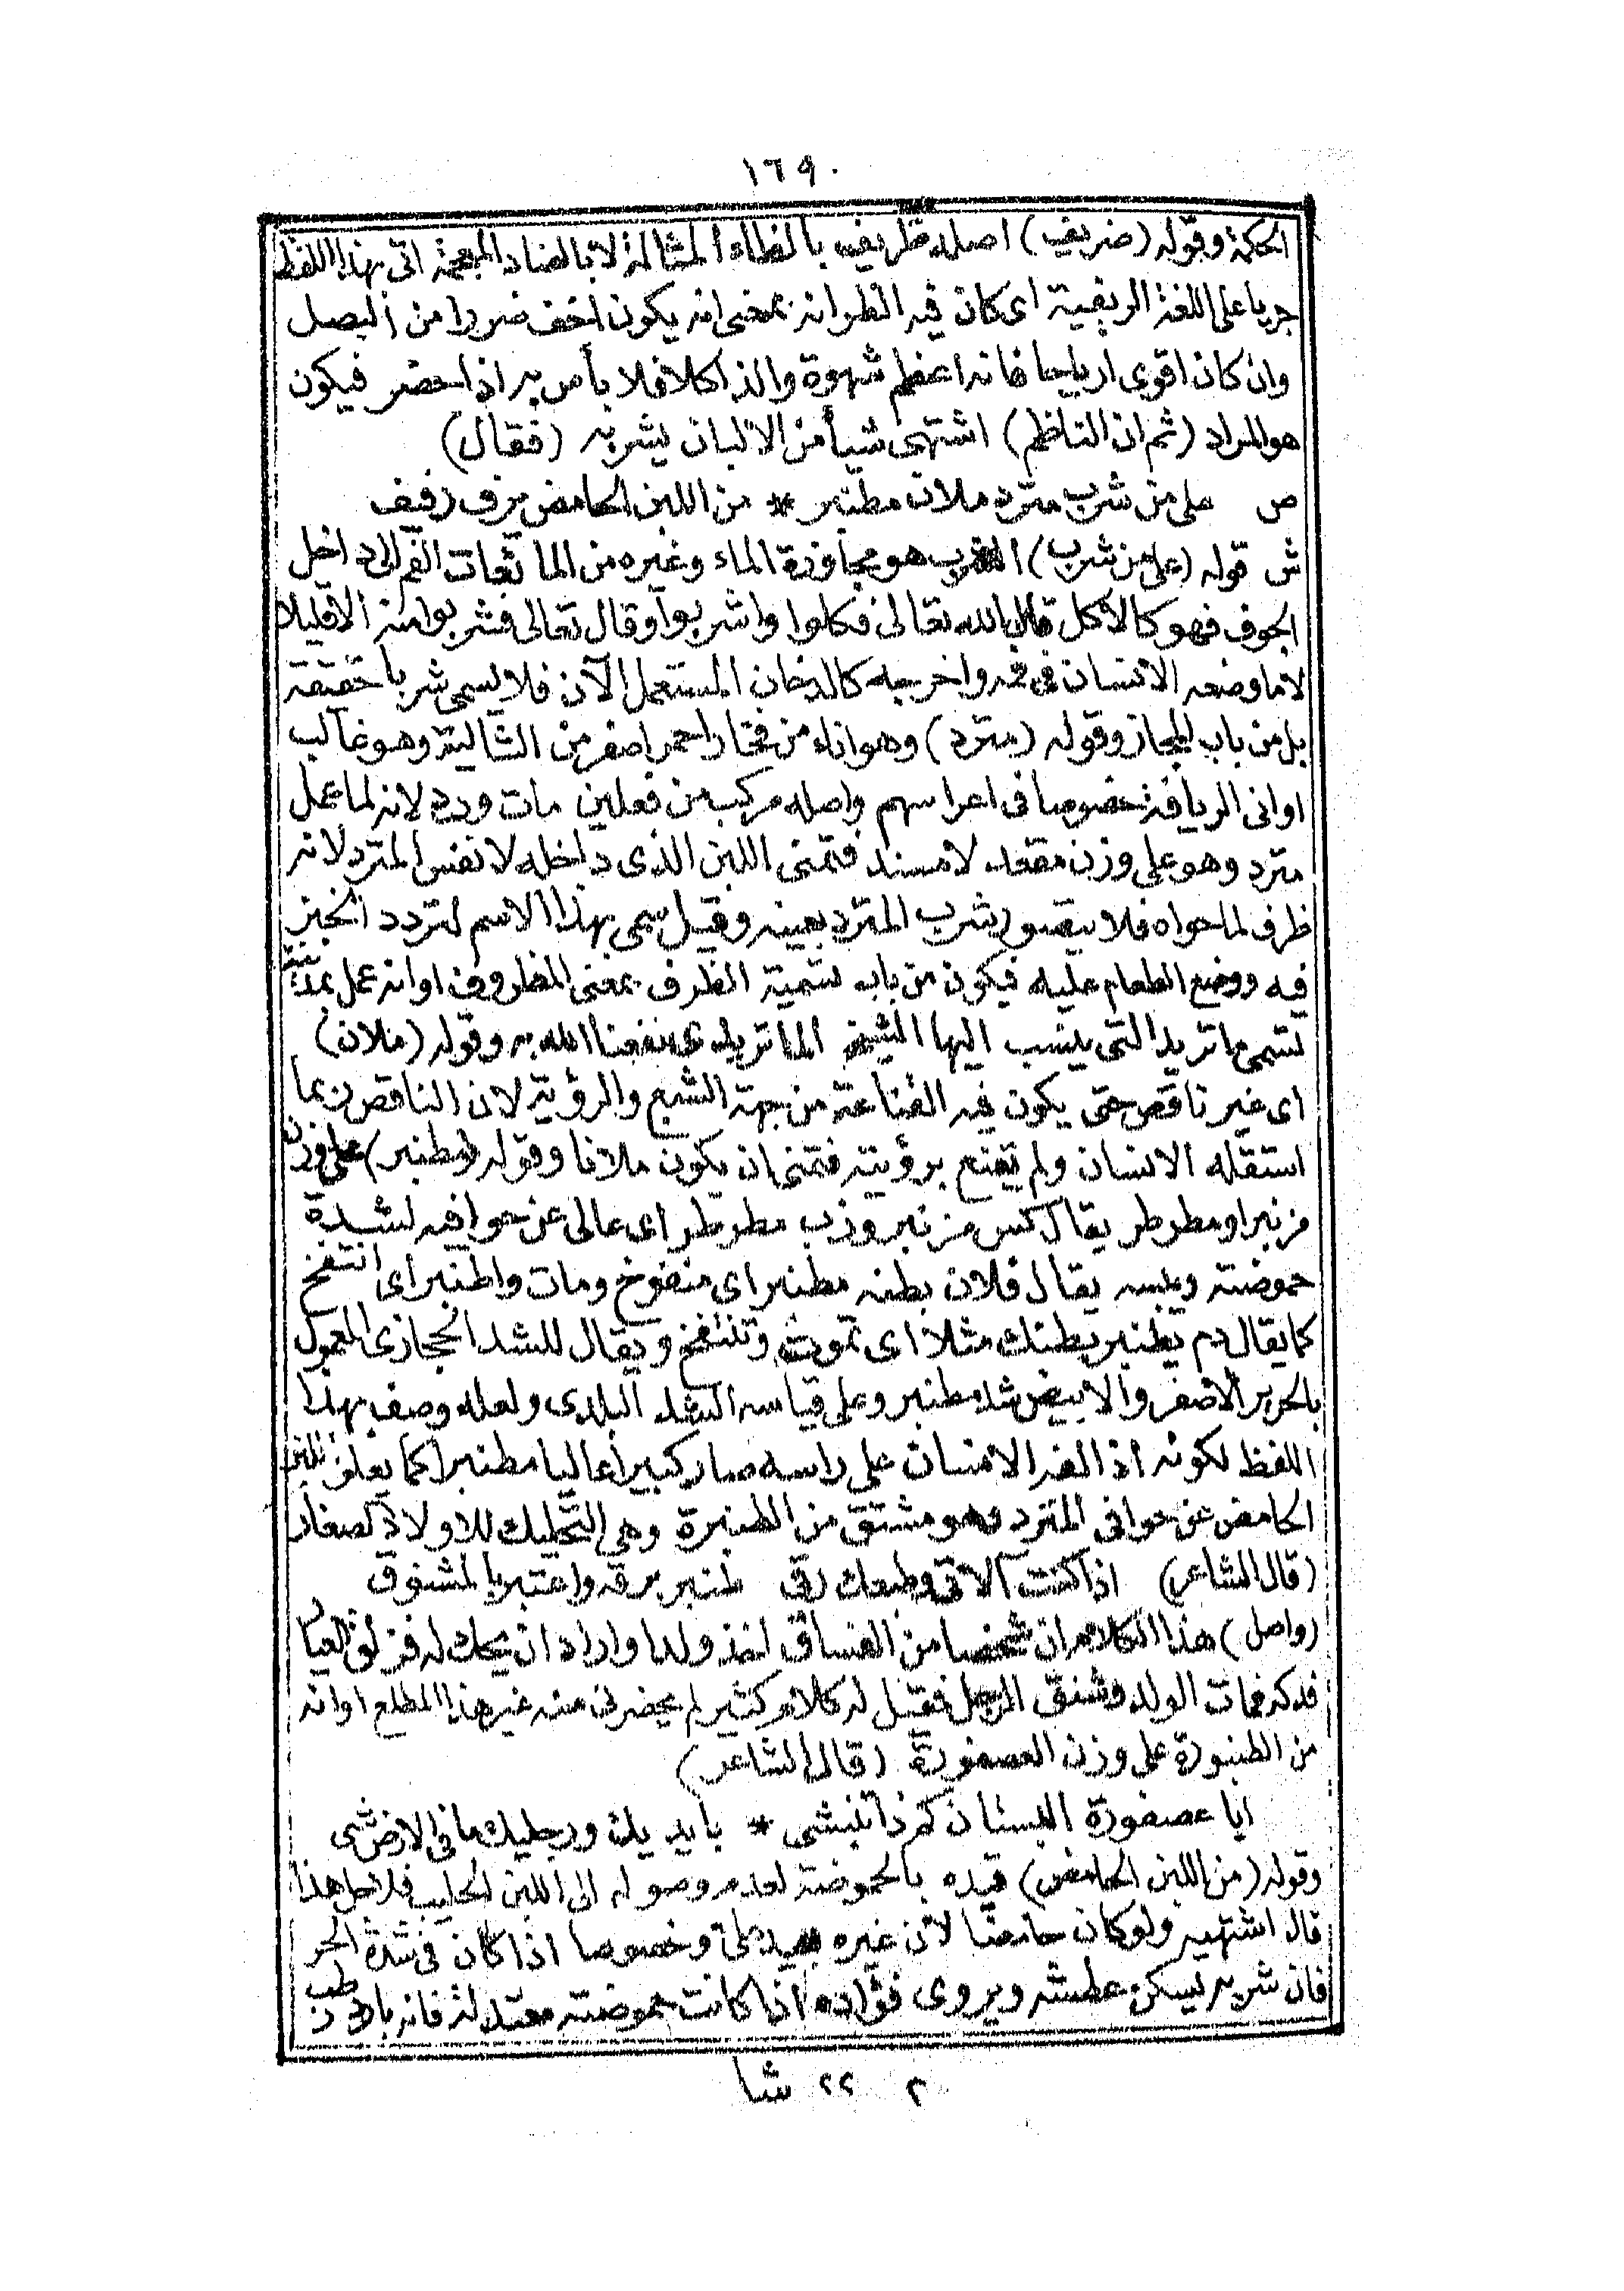 ١٦٩
الحكمة وقوله (ضريف) اصله ظريف بالظاء المشالة لا بالضاد المعجمة اتى بهذا اللفظ
جريا على اللغة الريفية اى كان فيه الظرافة بمعنى انه يكون اخف ضررا من البصل
وان كان اقوى ارياحا فانه اعظم شهوة والذ اكلا فلا بأس به اذا حضر فيكون
هو المراد (ثم ان الناظم) اشتهى شيأ من الالبان يشربه (فقال)
ص على من شرب مترد ملان مطنبر * من اللبن الحامض يرف رفيف
ش قوله (على من شرب) الشرب هو مجاوزة الماء وغيره من المائعات الفم الى داخل
الجوف فهو كالاكل قال الله تعالى فكلوا واشربوا وقال تعالى فشربوا منه الا قليلا
لا ما وضعه الانسان فى فمه واخرجه كالدخان المستعمل الآن فلا يسمى شربا حقيقة
بل من باب المجاز وقوله (مترد) وهو اناء من فخار احمر اصغر من الشالية وهو غالب
اوانى الريافة خصوصا فى اعراسهم واصله مركب من فعلين مات ورد لانه لما عمل
مترد وهو على وزن مقعد لا مسند فتمنى اللبن الذى داخله لا نفس المترد لانه
ظرف لما حواه فلا يتصور شرب المترد بعينه وقيل سمى بهذا الاسم لتردد الخبز
فيه ووضع الطعام عليه فيكون من باب تسمية الظرف بمعنى المظروف او انه عمل بمدينة
تسمى ماتريد التى ينسب اليها الشيخ الماتريدى نفعنا الله به وقوله (ملان)
اى غير ناقص حتى يكون فيه القناعة من جهة الشبع والرؤية لان الناقص ربما
استقله الانسان ولم يقنع برؤيته فتمنى ان يكون ملانا وقوله (مطنبر) على وزن
مزنبر او مطرطر يقال كس مزنبر وزب مطرطر اى عالى عن حوافيه لشدة
حموضته ويبسه يقال فلان بطنه مطنبر اى منفوخ ومات واطنبر اى انتفخ
كما يقال دم يطنبر بطنك مثلا اى تموت وتنتفخ ويقال للشد الحجازى المعمول
بالحرير الاصفر والابيض شد مطنبر وعلى قياسه الشد البلدى ولعله وصف بهذا
اللفظ لكونه اذا لفه الانسان على راسه صار كبيرا عاليا مطنبرا كما يعلو اللبن
الحامض عن حوافى المترد وهو مشتق من الطنبرة وهى التحليك للاولاد الصغار
(قال الشاعر) اذا كنت آلاتى وطبعك رقى طنبر برقه واعتبر بالمشنوق
(واصل) هذا الكلام ان شخصا من الفساق اخذ ولدا واراد ان يحك له فزلق العيار
فدكه فمات الولد وشنق الرجل فقيل له كلام كثير لم يحضرنى منه غير هذا المطلع او انه
من الطنبورة على وزن العصفورة (قال الشاعر)
ايا عصفورة البستان كم ذا تنبشى * بايديك ورجليك ما فى الارض شى
وقوله (من اللبن الحامض) قيده بالحموضة لعدم وصوله الى اللبن الحليب فلاجل هذا
قال اشتهيه ولو كان حامضا لان غيره وخصوصا اذا كان فى شدة الحر
فان شربه يسكن عطشه ويروى فؤاده اذا كانت حموضته معتدلة فانه بارد رطب
٢ ٢٢ شا